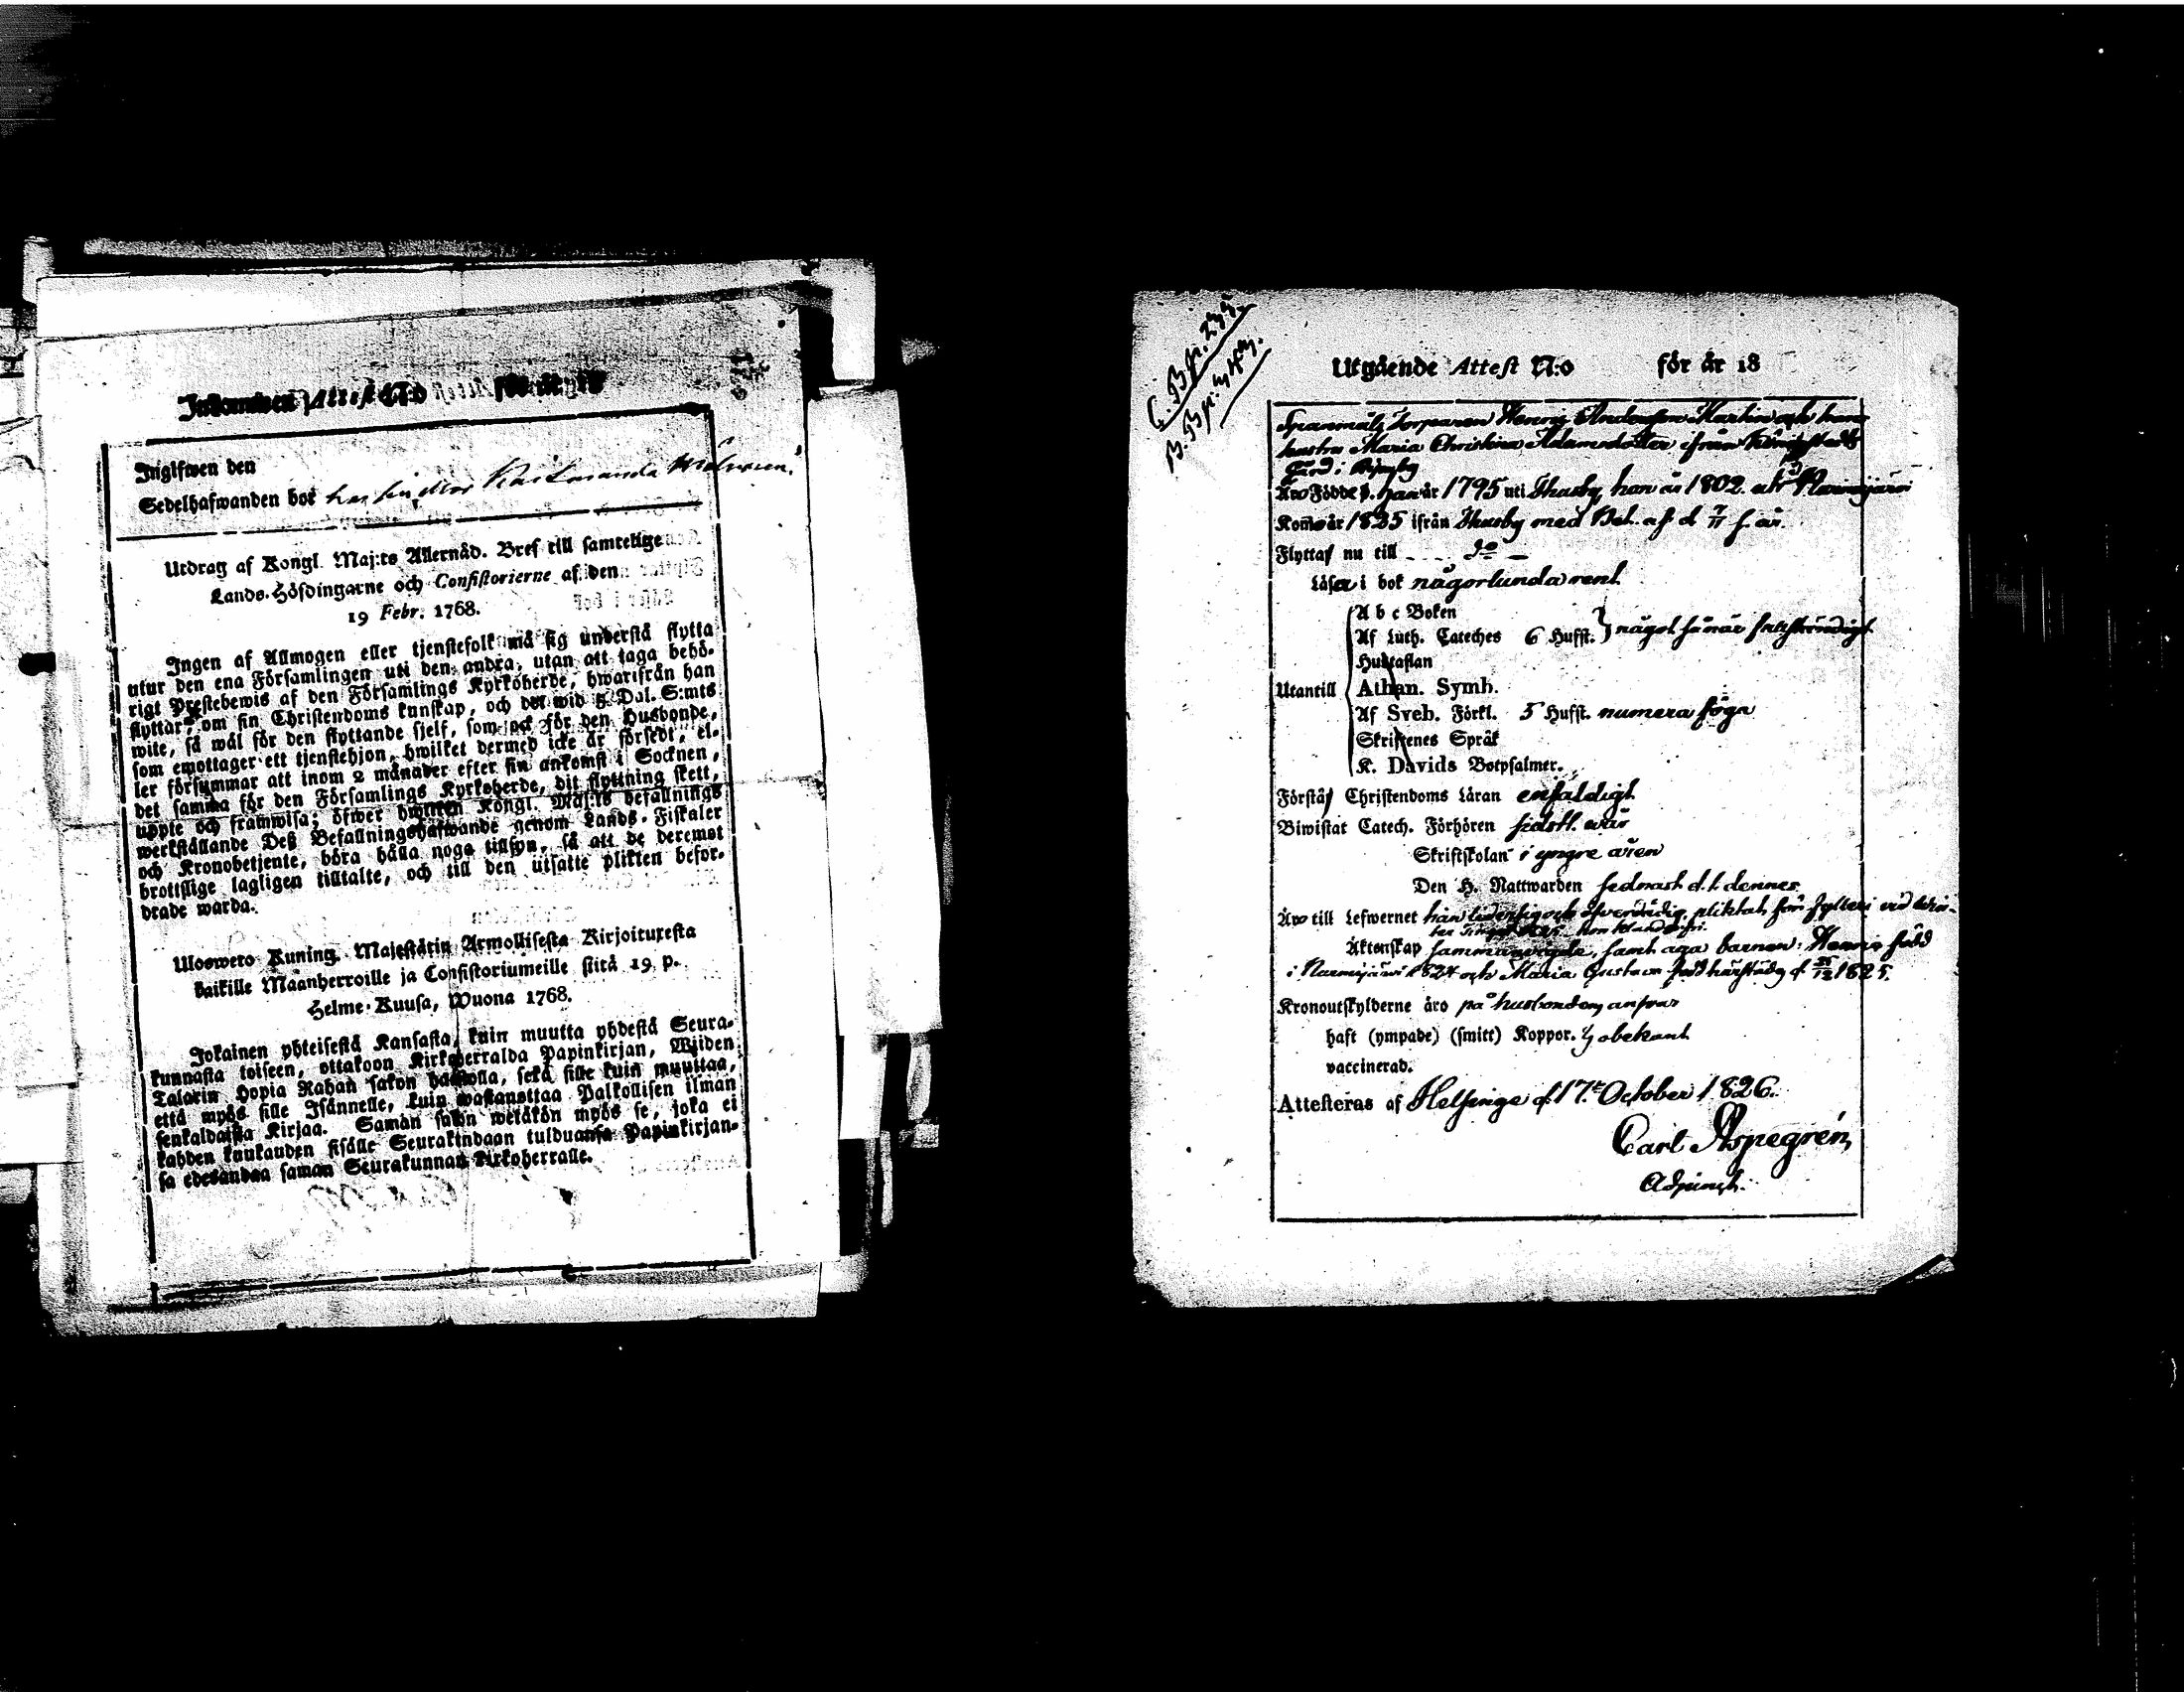 Inkommen Attest N:o för år 18
Inglfwen den
Sedelhafwanden bor hos sin Mor
Utdrag af Kongl. Maj:ts Allernåd. Bref till samtelige
Lands-Höfdingarne och Consistorierne af den
19 Febr. 1768.
Ingen af Allmogen eller tjenstefolk må sig understå flytta
utur den ena Församlingen uti den andra, utan att taga behö-
rigt Prestebewis af den Församlings Kyrkoherde, hwarifrån han
flyttar, om sin Christendoms kunskap, och det wid 5 Dal. S:mts
wite, så wål för den flyttande sjelf, som ock för den Husbonde,
som emottager ett tjenstehjon, hwilket dermed icke år försedt, el-
ler försummar att inom 2 månader efter sin ankomst i Socknen,
det samma för den Församlings Kyrkoherde, dit flyttning skett,
uppte och framwisa; öfwer hwilken Kongl. Maj:ts befallnings
werkställande Deß Befallningshafwande genom Lands-Fiskaler
och Kronobetjente, böra hålla noga tillsyn, så att de deremot
brottslige lagligen tilltalte, och till den utsatte plikten befor-
drade warda.
Uloswero Kuning. Majestätin Armollisesta Kirjoituxesta
kaikille Maanherroille ja Consistoriumeille siitä 19 p.
Helme-Kuusa, Wuona 1768.
Jokainen yhteisestä Kansasta, kuin muutta yhdestä Seura-
kunnasta toiseen, ottakoon Kirkoherralda Papinkirjan, Wiiden
Talarin Hopia Rahan sakon haastolla, sekä sille kuin muuttaa,
että myös sille Isännelle, kuin wastanottaa Palkollisen ilman
senkaldaista Kirjaa. Saman sakon wetäkön myös se, joka ei
kahden kuukauden sisälle Seurakundaan tulduansa Papinkirjan-
sa edesandaa saman Seurakunnan Kirkoherralle.
Utgående Attest N:o för år 18
Spanmåls Torparen Henric Andersson och hans
hustru Maria Christina Adamsdotter från
gård i
Äro Födde år 1795 uti Thusby, hon år 1802 Nurmijärvi
Kom år 1825 ifrån Thusby med Bet. af d 7/11 s. år.
Flyttaf nu till - - - - do —
Läsa i bok någorlunda rent
A b c Boken
Af Luth. Cateches 6 Hufst. något så när
Hustaflan
Utantill Athan. Symb.
Af Sveb. Förkl. 5 Hufst. numera föga
Skriftenes Språk
K. Davids Botpsalmer.
Förstå Christendoms Läran enfaldigt
Biwistat Catech. Förhören sidstl. wår
Skriftskolan i yngre åren
Den H. Nattwarden sednast d. 1 dennes
Äro till Lefwernet han pliktat för fylleri wid
Äktenskap sammanvigde, samt äga barnen: Henric född
i Nurmijärvi 1824 och Maria Gustava född härstädes d. 1825.
Kronoutskylderne äro på husbondens answar
haft (ympade) (smitt) Koppor. obekant
vaccinerad.
Attesteras af Helsinge d. 17:e October 1826.
Carl Aspegrén,
Adjunct.